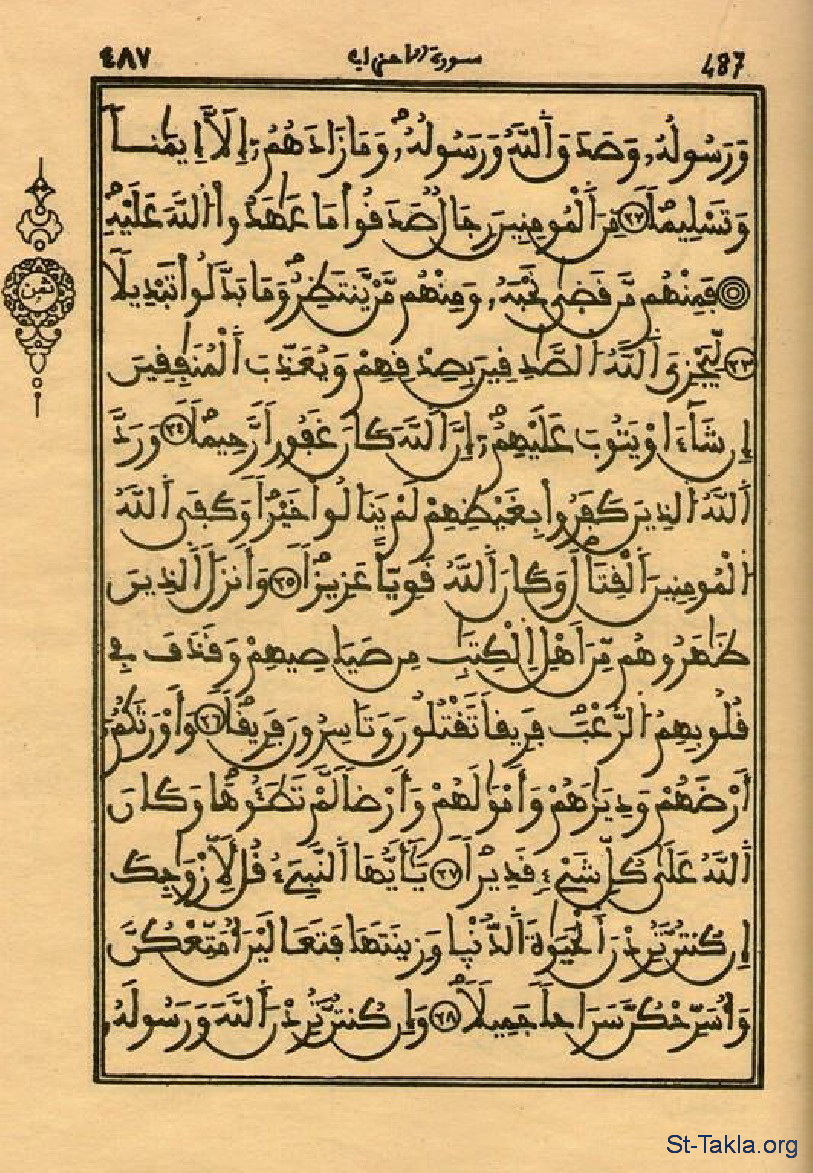 ٤٨٧ سورة الأحزاب 487
وَرَسُولُهُۥ وَصَدَقَ ٱللَّهُ وَرَسُولُهُۥ وَمَا زَادَهُمُۥٓ إِلَّآ إِيمَٰناً
وَتَسْلِيماً ٢٢ مِّنَ ٱلْمُومِنِينَ رِجَالٌ صَدَقُواْ مَا عَٰهَدُواْ ٱللَّهَ عَلَيْهِ
فَمِنْهُم مَّن قَضَىٰ نَحْبَهُۥ وَمِنْهُم مَّنْ يَّنتَظِرُ وَمَا بَدَّلُواْ تَبْدِيلاً
٢٣ لِّيَجْزِيَ ٱللَّهُ ٱلصَّٰدِقِينَ بِصِدْقِهِمْ وَيُعَذِّبَ ٱلْمُنَٰفِقِينَ
إِن شَآءَ اوْ يَتُوبَ عَلَيْهِمُۥٓ إِنَّ ٱللَّهَ كَانَ غَفُوراً رَّحِيماً ٢٤ وَرَدَّ
ٱللَّهُ ٱلذِينَ كَفَرُواْ بِغَيْظِهِمْ لَمْ يَنَالُواْ خَيْراً وَكَفَى ٱللَّهُ
ٱلْمُومِنِينَ ٱلْقِتَالَ وَكَانَ ٱللَّهُ قَوِيّاً عَزِيزاً ٢٥ وَأَنزَلَ ٱلذِينَ
ظَٰهَرُوهُم مِّنَ اَهْلِ ٱلْكِتَٰبِ مِن صَيَاصِيهِمْ وَقَذَفَ فِے
قُلُوبِهِمُ ٱلرُّعْبَ فَرِيقاً تَقْتُلُونَ وَتَاسِرُونَ فَرِيقاً ٢٦ وَأَوْرَثَكُمُۥٓ
أَرْضَهُمْ وَدِيَٰرَهُمْ وَأَمْوَٰلَهُمْ وَأَرْضاً لَّمْ تَطَـُٔوهَا وَكَانَ
ٱللَّهُ عَلَىٰ كُلِّ شَےْءٍ قَدِيراً ٢٧ يَٰٓأَيُّهَا ٱلنَّبِےٓءُ قُل لِّأَزْوَٰجِكَ
إِن كُنتُنَّ تُرِدْنَ ٱلْحَيَوٰةَ ٱلدُّنْيَا وَزِينَتَهَا فَتَعَالَيْنَ أُمَتِّعْكُنَّ
وَأُسَرِّحْكُنَّ سَرَاحاً جَمِيلاً ٢٨ وَإِن كُنتُنَّ تُرِدْنَ ٱللَّهَ وَرَسُولَهُۥ
ثمن
St-Takla.org